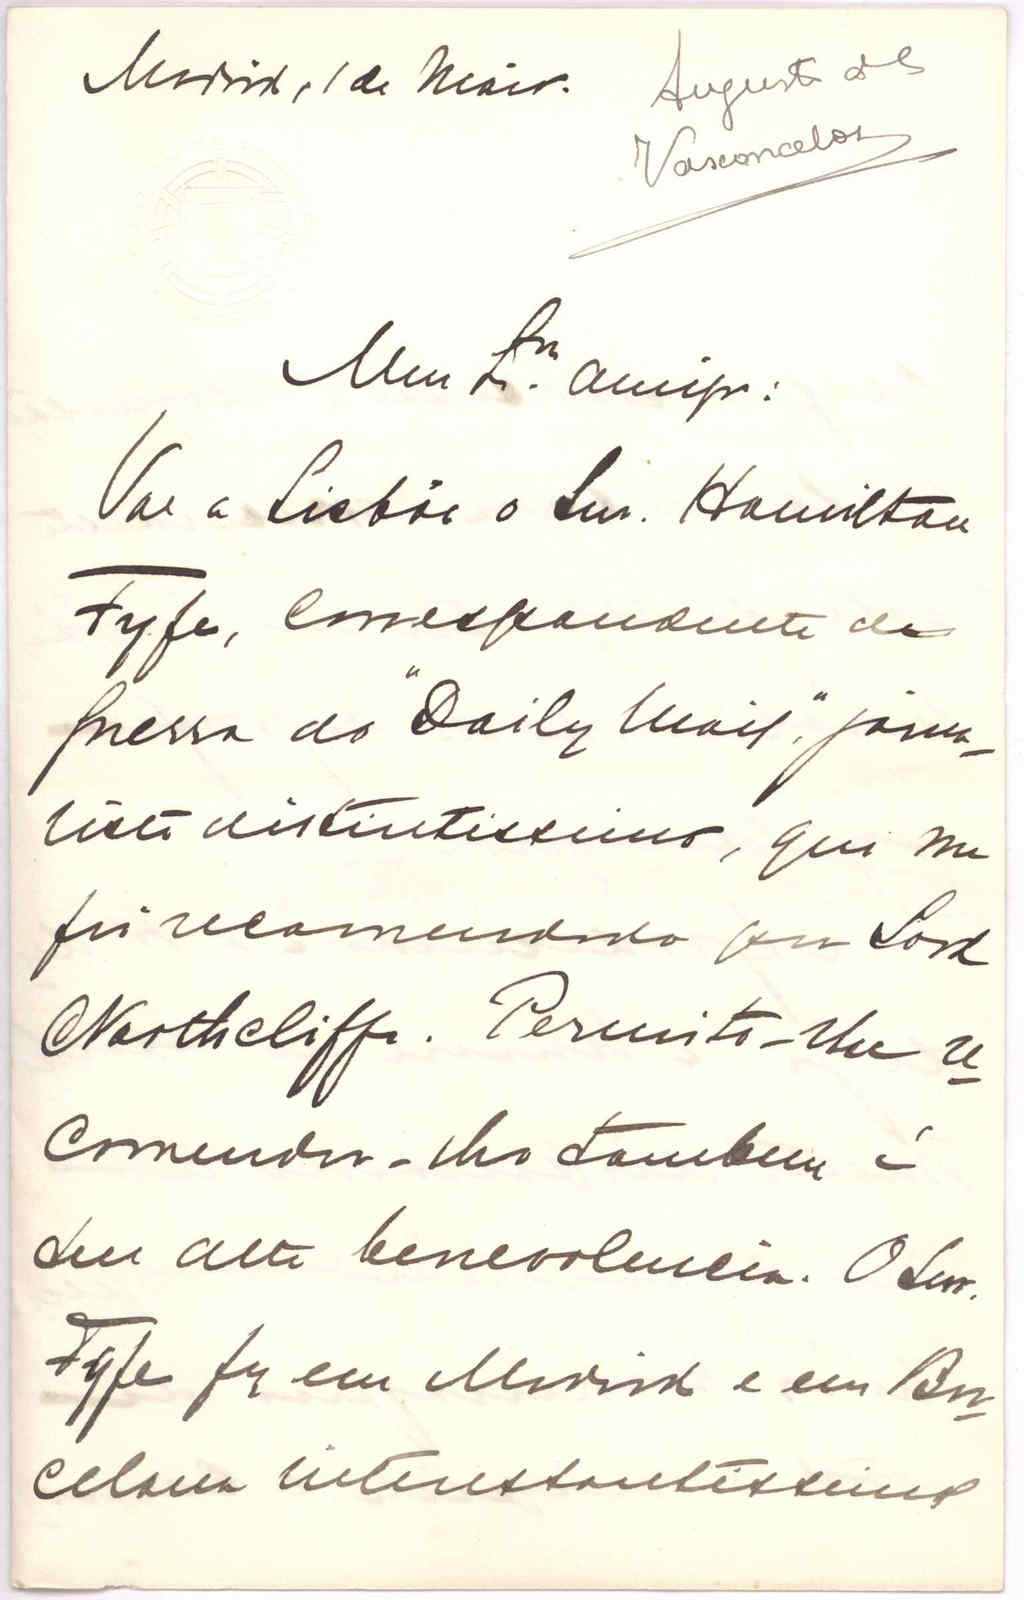 Madrid, 1 de Maio.
Augusto de
Vasconcelos
Meu Exmo. amigo:
Vae a Lisbôa o Snr. Hamilton
Fyfe, correspondente de
guerra do "Daily Mail", jorna-
lista distintissimo, que me
foi recomendado por Lord
Northcliffe. Permito-me re-
comendar-lho tambem á
sua alta benevolencia. O Snr.
Fyfe fez em Madrid e em Bar-
celona interessantissimas